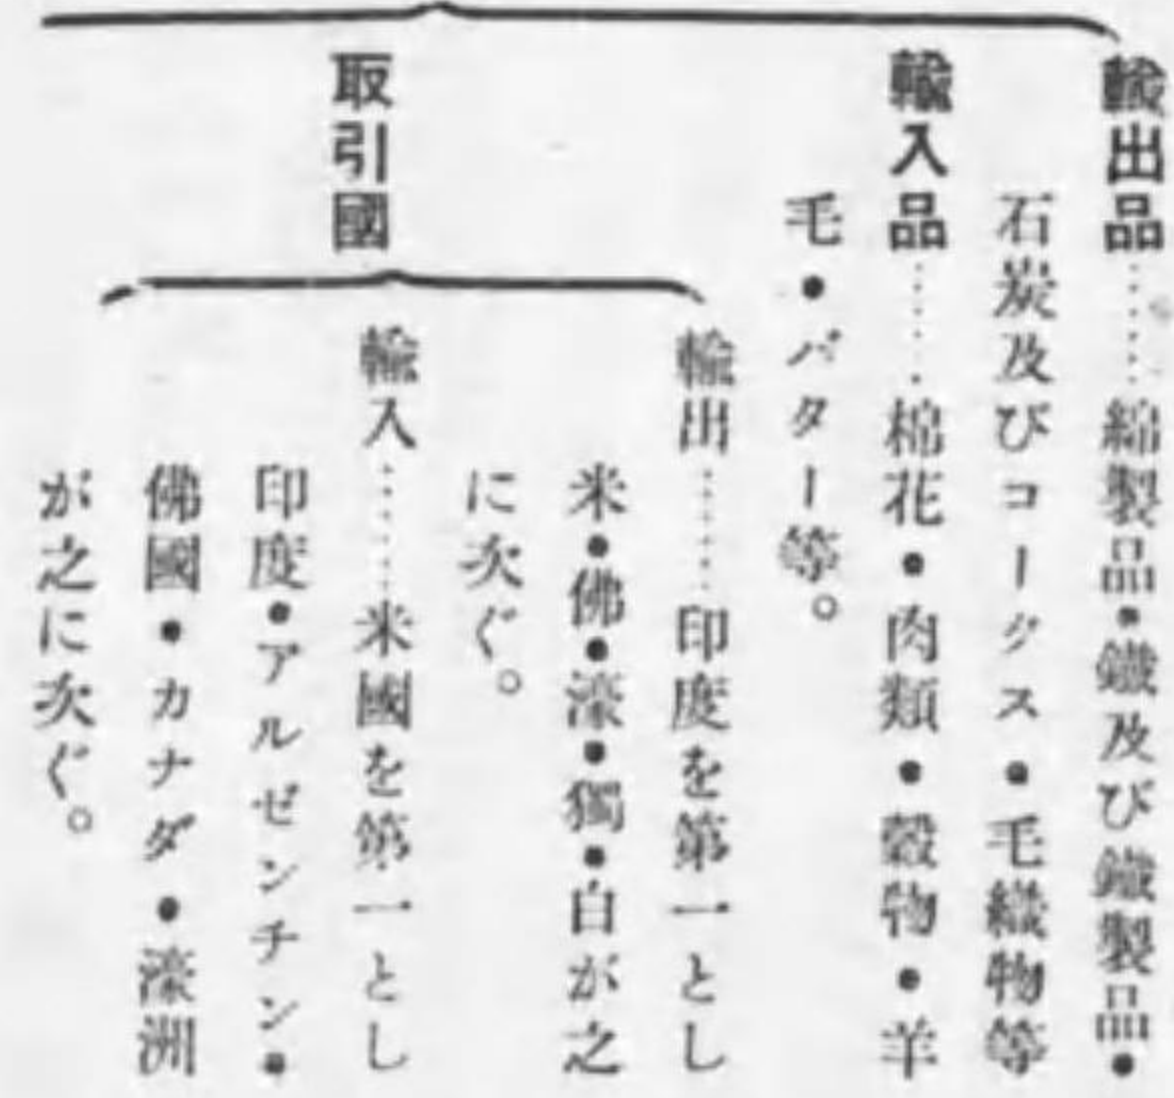 輸出品……綿製品・鐵及び鐵製品・
石炭及びコークス・毛織物等
輸入品……棉花・肉類・穀物・羊
毛・バター等。
取引國
輸出……印度を第一とし
米・佛・濠・獨・白が之
に次ぐ。
輸入……米國を第一とし
印度・アルゼンチン・
佛國・カナダ・濠洲
が之に次ぐ。